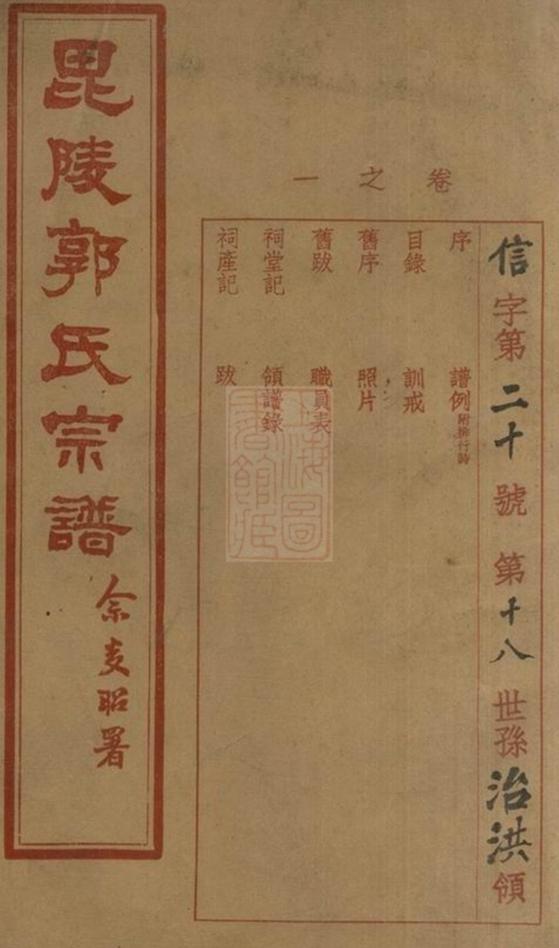 毘陵郭氏宗譜
余支昭署
卷之一
信字第二十號第十八世孫治洪領
序 譜例附排行詩
目錄 訓戒
舊序 照片
舊跋 職員表
祠堂記 領譜錄
祠產記 跋
上海圖書館藏